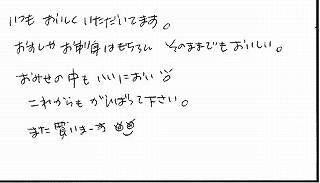 いつも おいしく いただいてます。
おすしや お刺身はもちろん そのままでもおいしい。
おみせの中も いいにおい
これからも がんばって下さい。
また 買いまーす